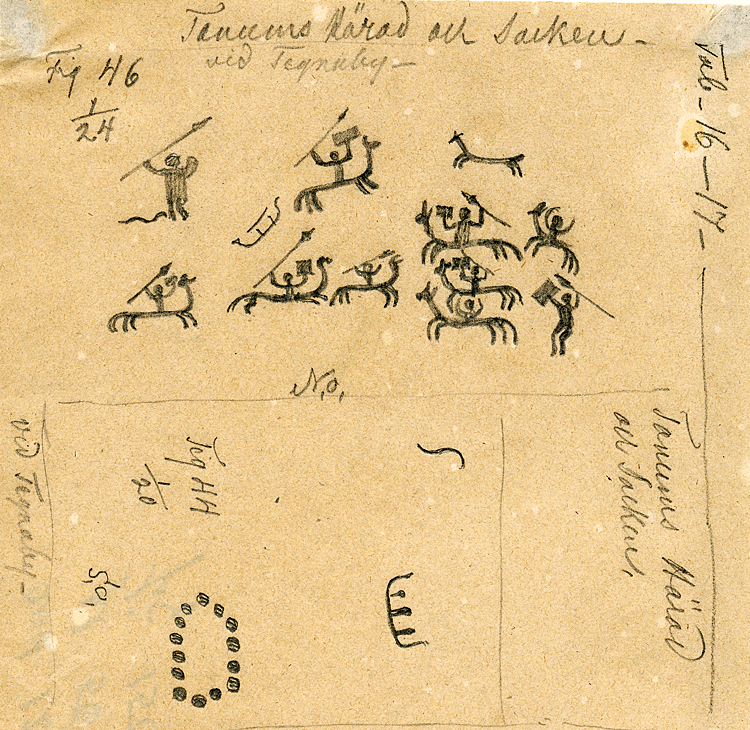 Tanums Härad och Socken -
vid Tegneby -
Fig 46
1
24
Tab - 16 - 17 -
N.O.
Tanums Härad
och Socken,
vid Tegneby -
Fig 44
1
20
S,O,